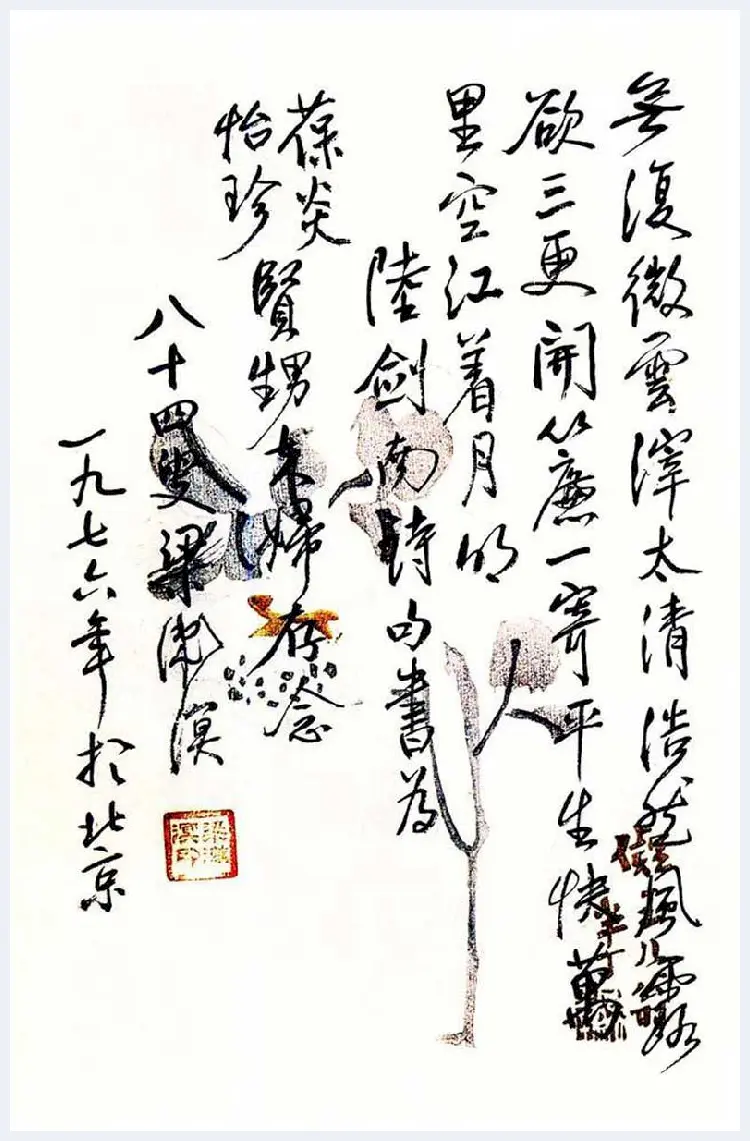 無復微雲滓太清浩然風露
欲三更開簾一寄平生快萬
里空江着月明
陸劍南詩句書為
葆炎
怡珍
賢甥夫婦存念
八十四叟梁漱溟
一九七六年於北京
梁漱溟印